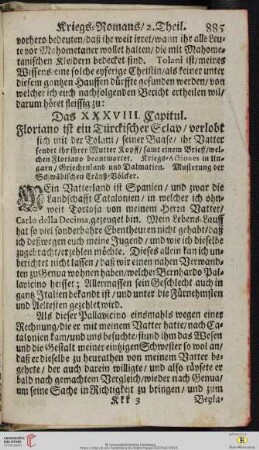 Kriegs-Romans/ 2. Theil. 885
vorhero bedeuten/daß ihr weit irret/wann ihr alle Leu-
te vor Mahometaner wollet halten/ die mit Mahome-
tanischen Kleidern bedecket sind. Tolani ist/ meines
Wissens/eine solche eyferige Christin/als keiner unter
diesem gantzen Hauffen dürffte gefunden werden/ von
welcher ich euch nachfolgenden Bericht ertheilen wil/
darum höret fleissig zu:
Das XXXVIII. Capitul.
Floriano ist ein Türckischer Sclav/ verlobt
sich mit der Tolani/ seiner Baase/ ihr Vatter
sendet ihr ihrer Mutter Kopff/ samt einem Brief/wel-
chen Floriano beantwortet. Kriegs-Actiones in Un-
garn/ Griechenland und Dalmatien. Musterung der
Schwäbischen Cräyß-Völcker.
MEin Vatterland ist Spanien/ und zwar die
Landschafft Catalonien/ in welcher ich ohn-
weit Tortosa von meinem Herrn Vatter/
Carlo della Decima,gezeuget bin. Mein Lebens-Lauff
hat so viel sonderbahre Ebentheuren nicht gehabt/daß
ich deßwegen euch meine Jugend/ und wie ich dieselbe
zugebracht/erzehlen möchte. Dieses allein kan ich un-
berichtet nicht lassen/ daß wir einen nahen Verwand-
ten zu Genua wohnen haben/welcher Bernhardo Pal-
lavicino heisset; Allermassen sein Geschlecht auch in
gantz Italien bekandt ist/ und unter die Fürnehmsten
und Aeltesten gezehlet wird.
Als dieser Pallavicino einsmahls wegen einer
Rechnung/die er mit meinem Vatter hatte/ nach Ca-
talonien kam/und uns besuchte/stund ihm das Wesen
und die Gestalt meiner eintzigen Schwester so wol an/
daß er dieselbe zu heurathen von meinem Vatter be-
gehrte/ der auch darein willigte/ und also räysete er
bald nach gemachtem Vergleich/wieder nach Genua/
um seine Sache in Richtigkeit zu bringen/ und zum
Kkk 3